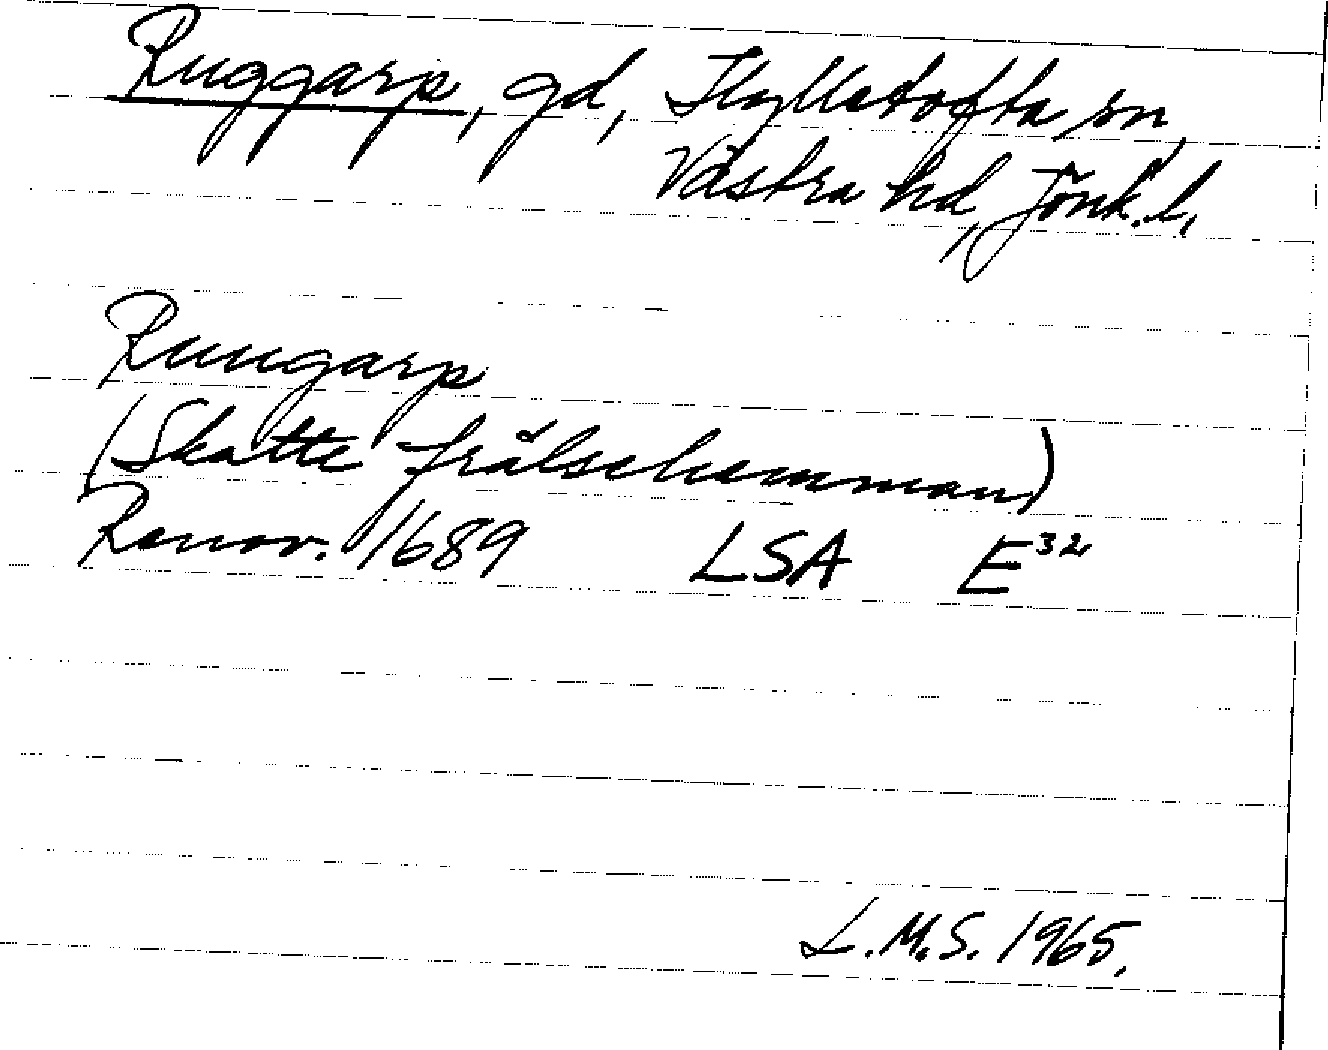 Ruggarp, gd, Hylletofta sn,
Västra hd, Jönk. l.
Rungarp
(Skatte frälsehemman)
Renov. 1689 LSA E32
L.M.S. 1965.